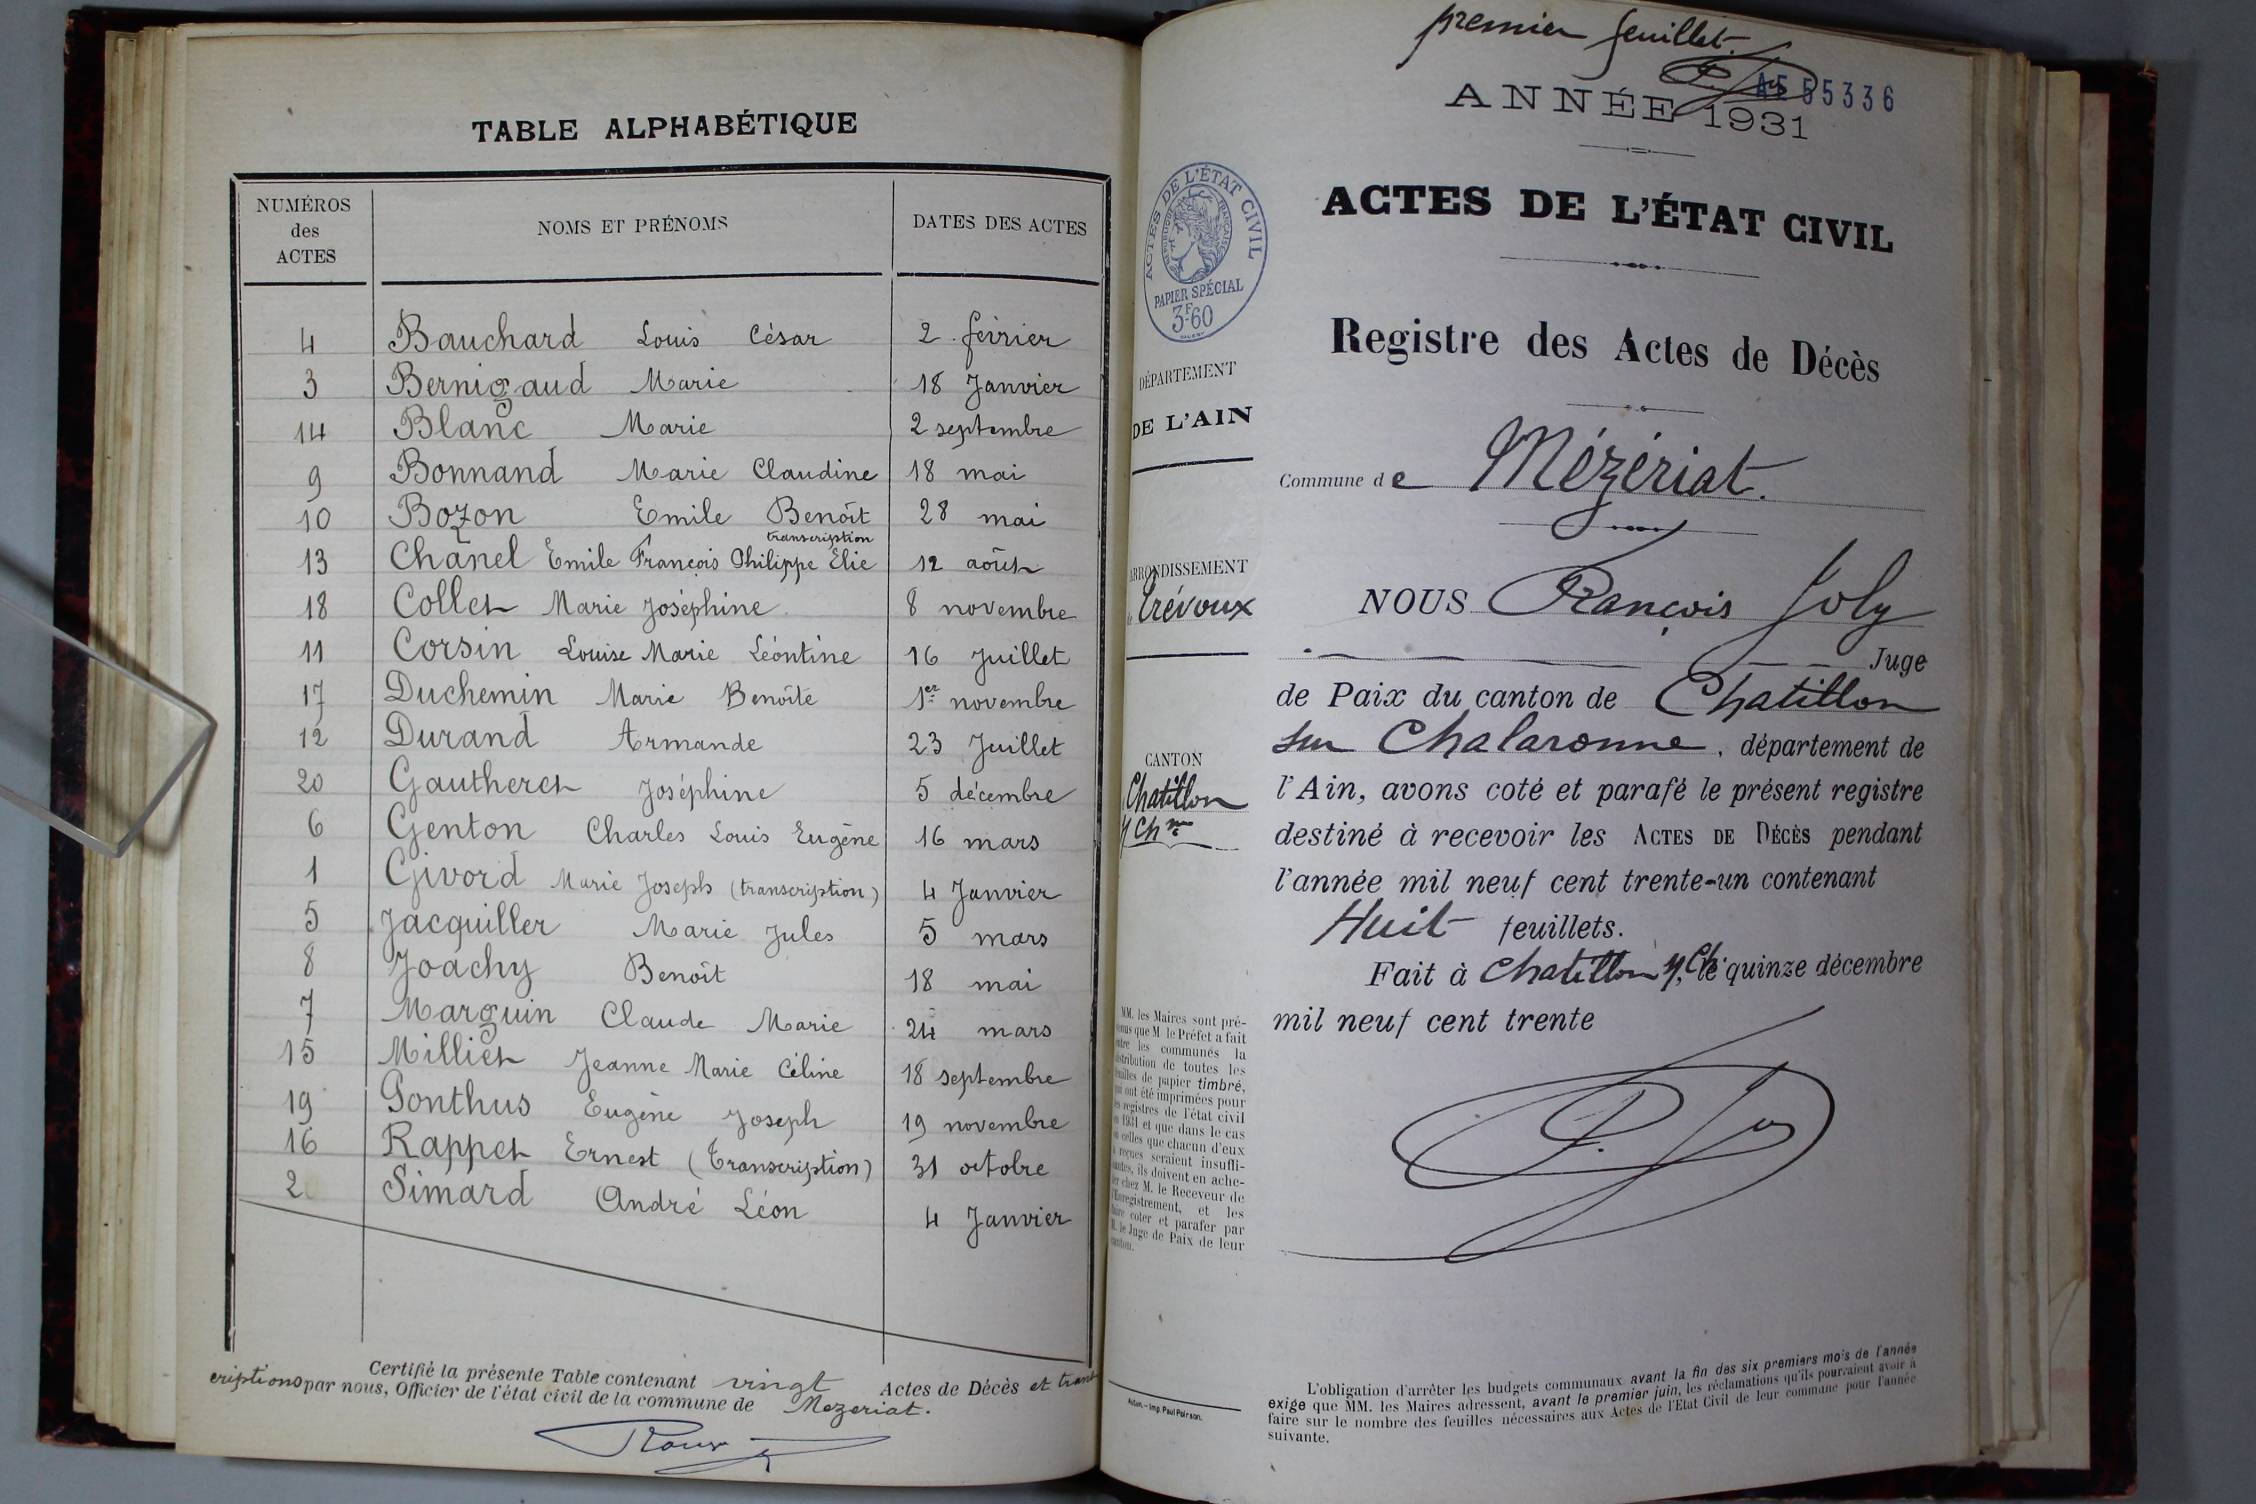 TABLE ALPHABÉTIQUE
NUMÉROS des ACTES NOMS ET PRÉNOMS DATES DES ACTES
4 Bauchard Louis César 2 février
3 Bernigaud Marie 18 Janvier
14 Blanc Marie 2 septembre
9 Bonnand Marie Claudine 18 mai
10 Bozon Emile Benoît 28 mai
transcription
13 Chanel Emile François Philippe Elie 12 août
18 Collet Marie Joséphine 8 novembre
11 Corsin Louise Marie Léontine 16 Juillet
17 Duchemin Marie Benoîte 1er novembre
12 Durand Armande 23 Juillet
20 Gautheret Joséphine 5 décembre
6 Genton Charles Louis Eugène 16 mars
1 Givord Marie Joseph (transcription) 4 Janvier
5 Jacquiller Marie Jules 5 mars
8 Joachy Benoît 18 mai
7 Marguin Claude Marie 24 mars
15 Milliet Jeanne Marie Céline 18 septembre
19 Ponthus Eugène Joseph 19 novembre
16 Rappet Ernest (Transcription) 31 octobre
2 Simard André Léon 4 Janvier
Certifié la présente Table contenant vingt Actes de Décès et trans
criptions par nous, Officier de l'état civil de la commune de Mezeriat.
Roux
premier feuillet.
55336
ANNÉE 1931
ACTES DE L'ÉTAT CIVIL
Registre des Actes de Décès
Commune de Mézériat.
NOUS François Joly
Juge
de Paix du canton de Chatillon
sur Chalaronne, département de
l'Ain, avons coté et parafé le présent registre
destiné à recevoir les ACTES DE DÉCÈS pendant
l'année mil neuf cent trente-un contenant
Huit feuillets.
Fait à Chatillon s/ Ch. le quinze décembre
mil neuf cent trente
L'obligation d'arrêter les budgets communaux avant la fin des six premiers mois de l'année
exige que MM. les Maires adressent, avant le premier juin, les réclamations qu'ils pourraient avoir à
faire sur le nombre des feuilles nécessaires aux Actes de l'Etat Civil de leur commune pour l'année
suivante.
ACTES DE L'ÉTAT CIVIL
RÉPUBLIQUE FRANÇAISE
PAPIER SPÉCIAL
3F60
DÉPARTEMENT
DE L'AIN
ARRONDISSEMENT
de Trévoux
CANTON
Chatillon
s/ Chne
MM. les Maires sont pré-
venus que M. le Préfet a fait
entre les communes la
distribution de toutes les
feuilles de papier timbré,
qui ont été imprimées pour
les registres de l'état civil
en 1931 et que dans le cas
où celles que chacun d'eux
a reçues seraient insuffi-
santes, ils doivent en ache-
ter chez M. le Receveur de
l'Enregistrement, et les
faire coter et parafer par
M. le Juge de Paix de leur
canton.
Autun. — Imp. Paul Poirson.